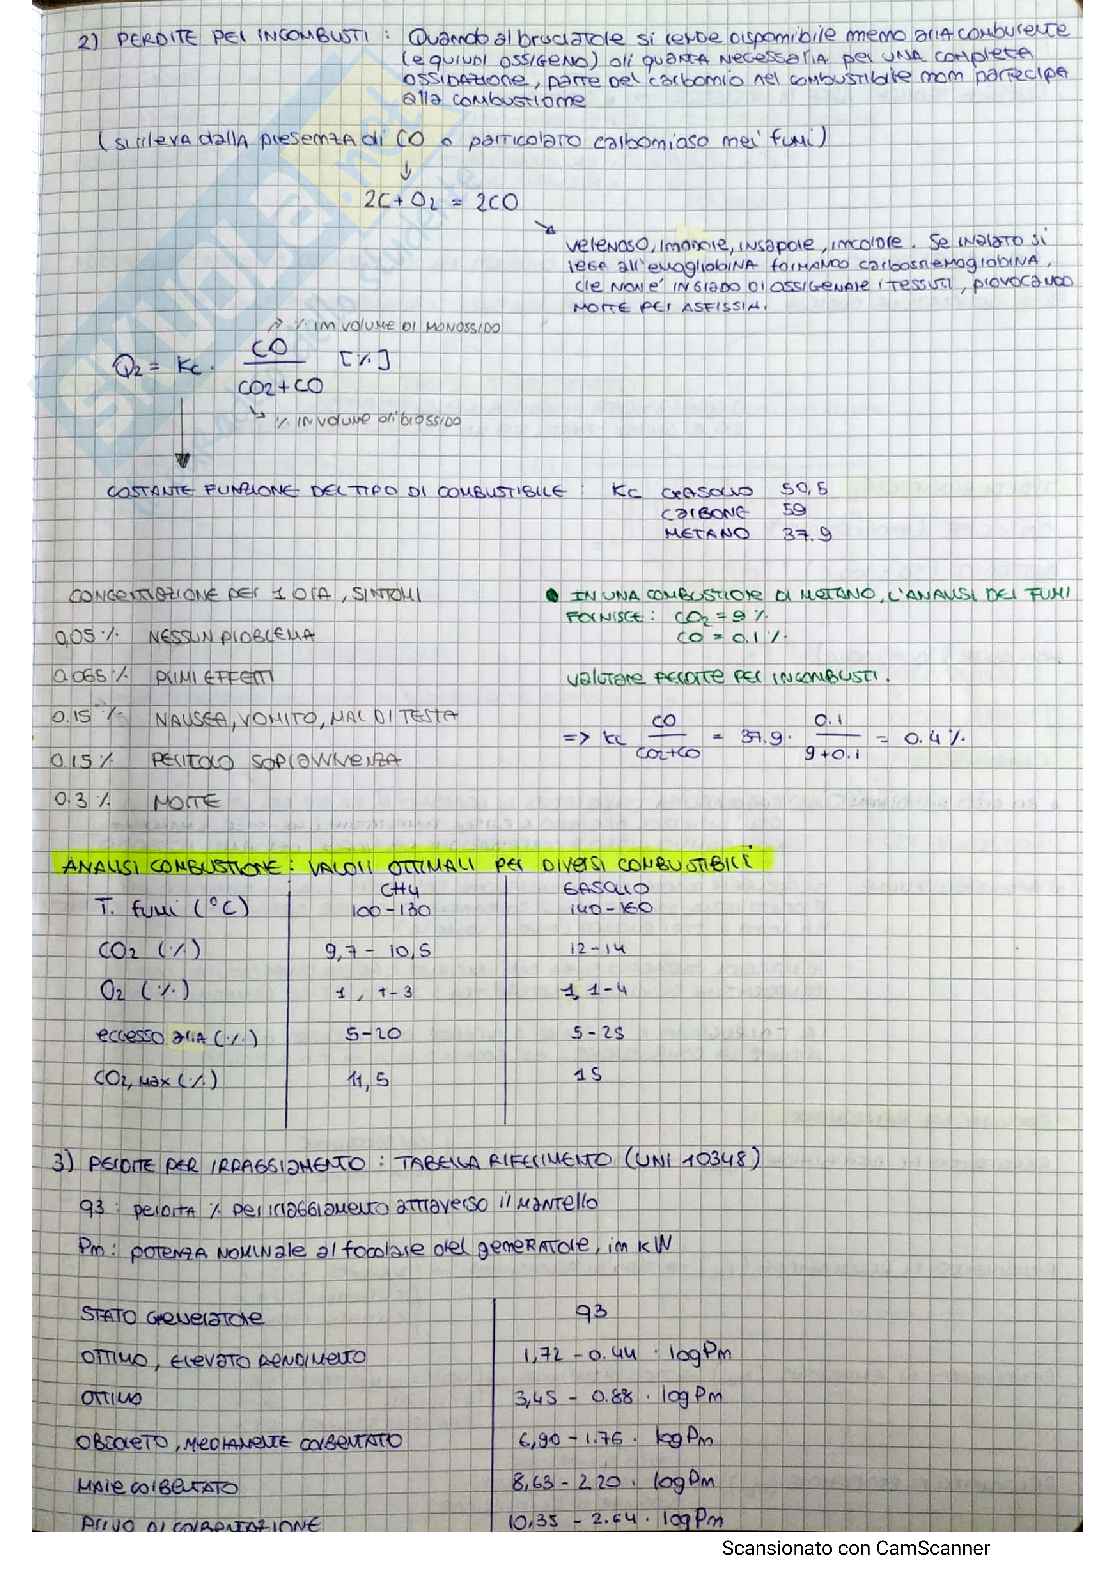 2) PERDITE PER INCOMBUSTI : Quando al bruciatore si rende disponibile meno aria comburente
(e quindi ossigeno) di quanta necessaria per una completa
ossidazione, parte del carbonio nel combustibile non partecipa
alla combustione
(si rileva dalla presenza di CO o particolato carbonioso nei fumi)
↓
2C + O2 = 2CO
↘
velenoso, insapore, incolore. Se inalato si
lega all'emoglobina formando carbosriemoglobina,
che non è in grado di ossigenare i tessuti, provocando
morte per asfissia.
↗ % in volume di monossido
Q2 = Kc · CO / CO2+CO [%]
↳ % in volume di biossido
COSTANTE FUNZIONE DEL TIPO DI COMBUSTIBILE : Kc GASOLIO 59,5
CARBONE 59
METANO 37.9
CONCENTRAZIONE PER 1 ORA, SINTOMI
0,05 % NESSUN PROBLEMA
0,065 % PRIMI EFFETTI
0.15 % NAUSEA, VOMITO, MAL DI TESTA
0.15 % PERICOLO SOPRAVVIVENZA
0.3 % MORTE
• IN UNA COMBUSTIONE DI METANO, L'ANALISI DEI FUMI
FORNISCE : CO2 = 9 %
CO = 0.1 %
valutare perdite per incombusti.
=> Kc CO / CO2+CO = 37.9 · 0.1 / 9+0.1 = 0.4 %
ANALISI COMBUSTIONE : VALORI OTTIMALI PER DIVERSI COMBUSTIBILI
CH4 GASOLIO
T. fumi (°C) 100-130 140-160
CO2 (%) 9,7 - 10,5 12-14
O2 (%) 1, 1-3 1, 1-4
eccesso aria (%) 5-20 5-25
CO2,max (%) 11,5 15
3) PERDITE PER IRRAGGIAMENTO : TABELLA RIFERIMENTO (UNI 10348)
q3 : perdita % per irraggiamento attraverso il mantello
Pm : potenza nominale al focolare del generatore, in kW
STATO Generatore q3
OTTIMO, Elevato RENDIMENTO 1,72 - 0.44 · log Pm
OTTIMO 3,45 - 0.88 · log Pm
OBSOLETO, MEDIAMENTE COIBENTATO 6,90 - 1.76 · log Pm
MALE COIBENTATO 8,63 - 2.20 · log Pm
PRIVO DI COIBENTAZIONE 10,35 - 2.64 · log Pm
Scansionato con CamScanner